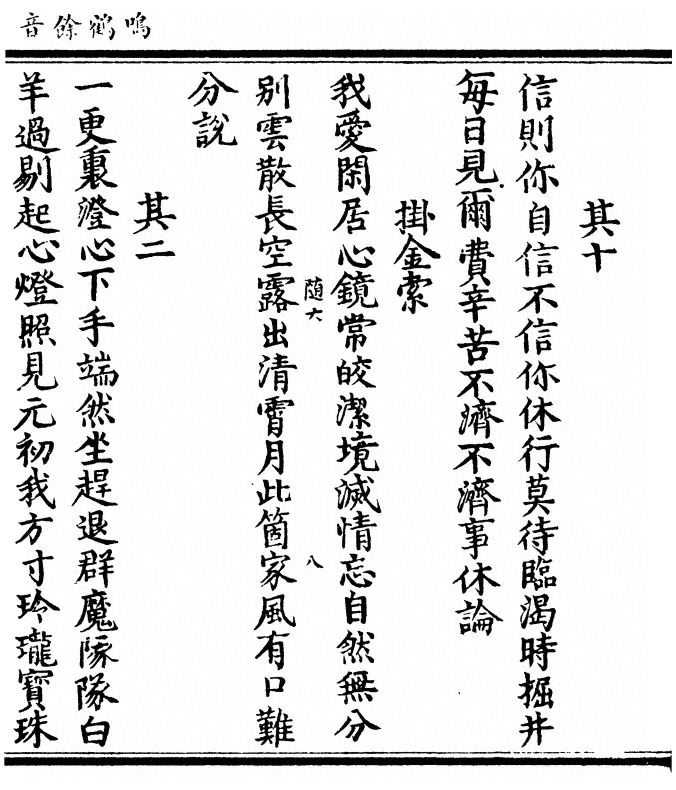 鳴鶴餘音
其十
信則你自信不信你休行莫待臨渴時掘井
每日見爾費辛苦不濟不濟事休論
掛金索
我愛閑居心鏡常皎潔境滅情忘自然無分
随六
八
别雲散長空露出清霄月此箇家風有口難
分說
其二
一更裏澄心下手端然坐趕退群魔隊隊白
羊過剔起心燈照見元初我方寸玲瓏寶珠